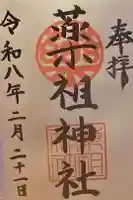 奉拝
薬祖神社
令和八年二月二十一日